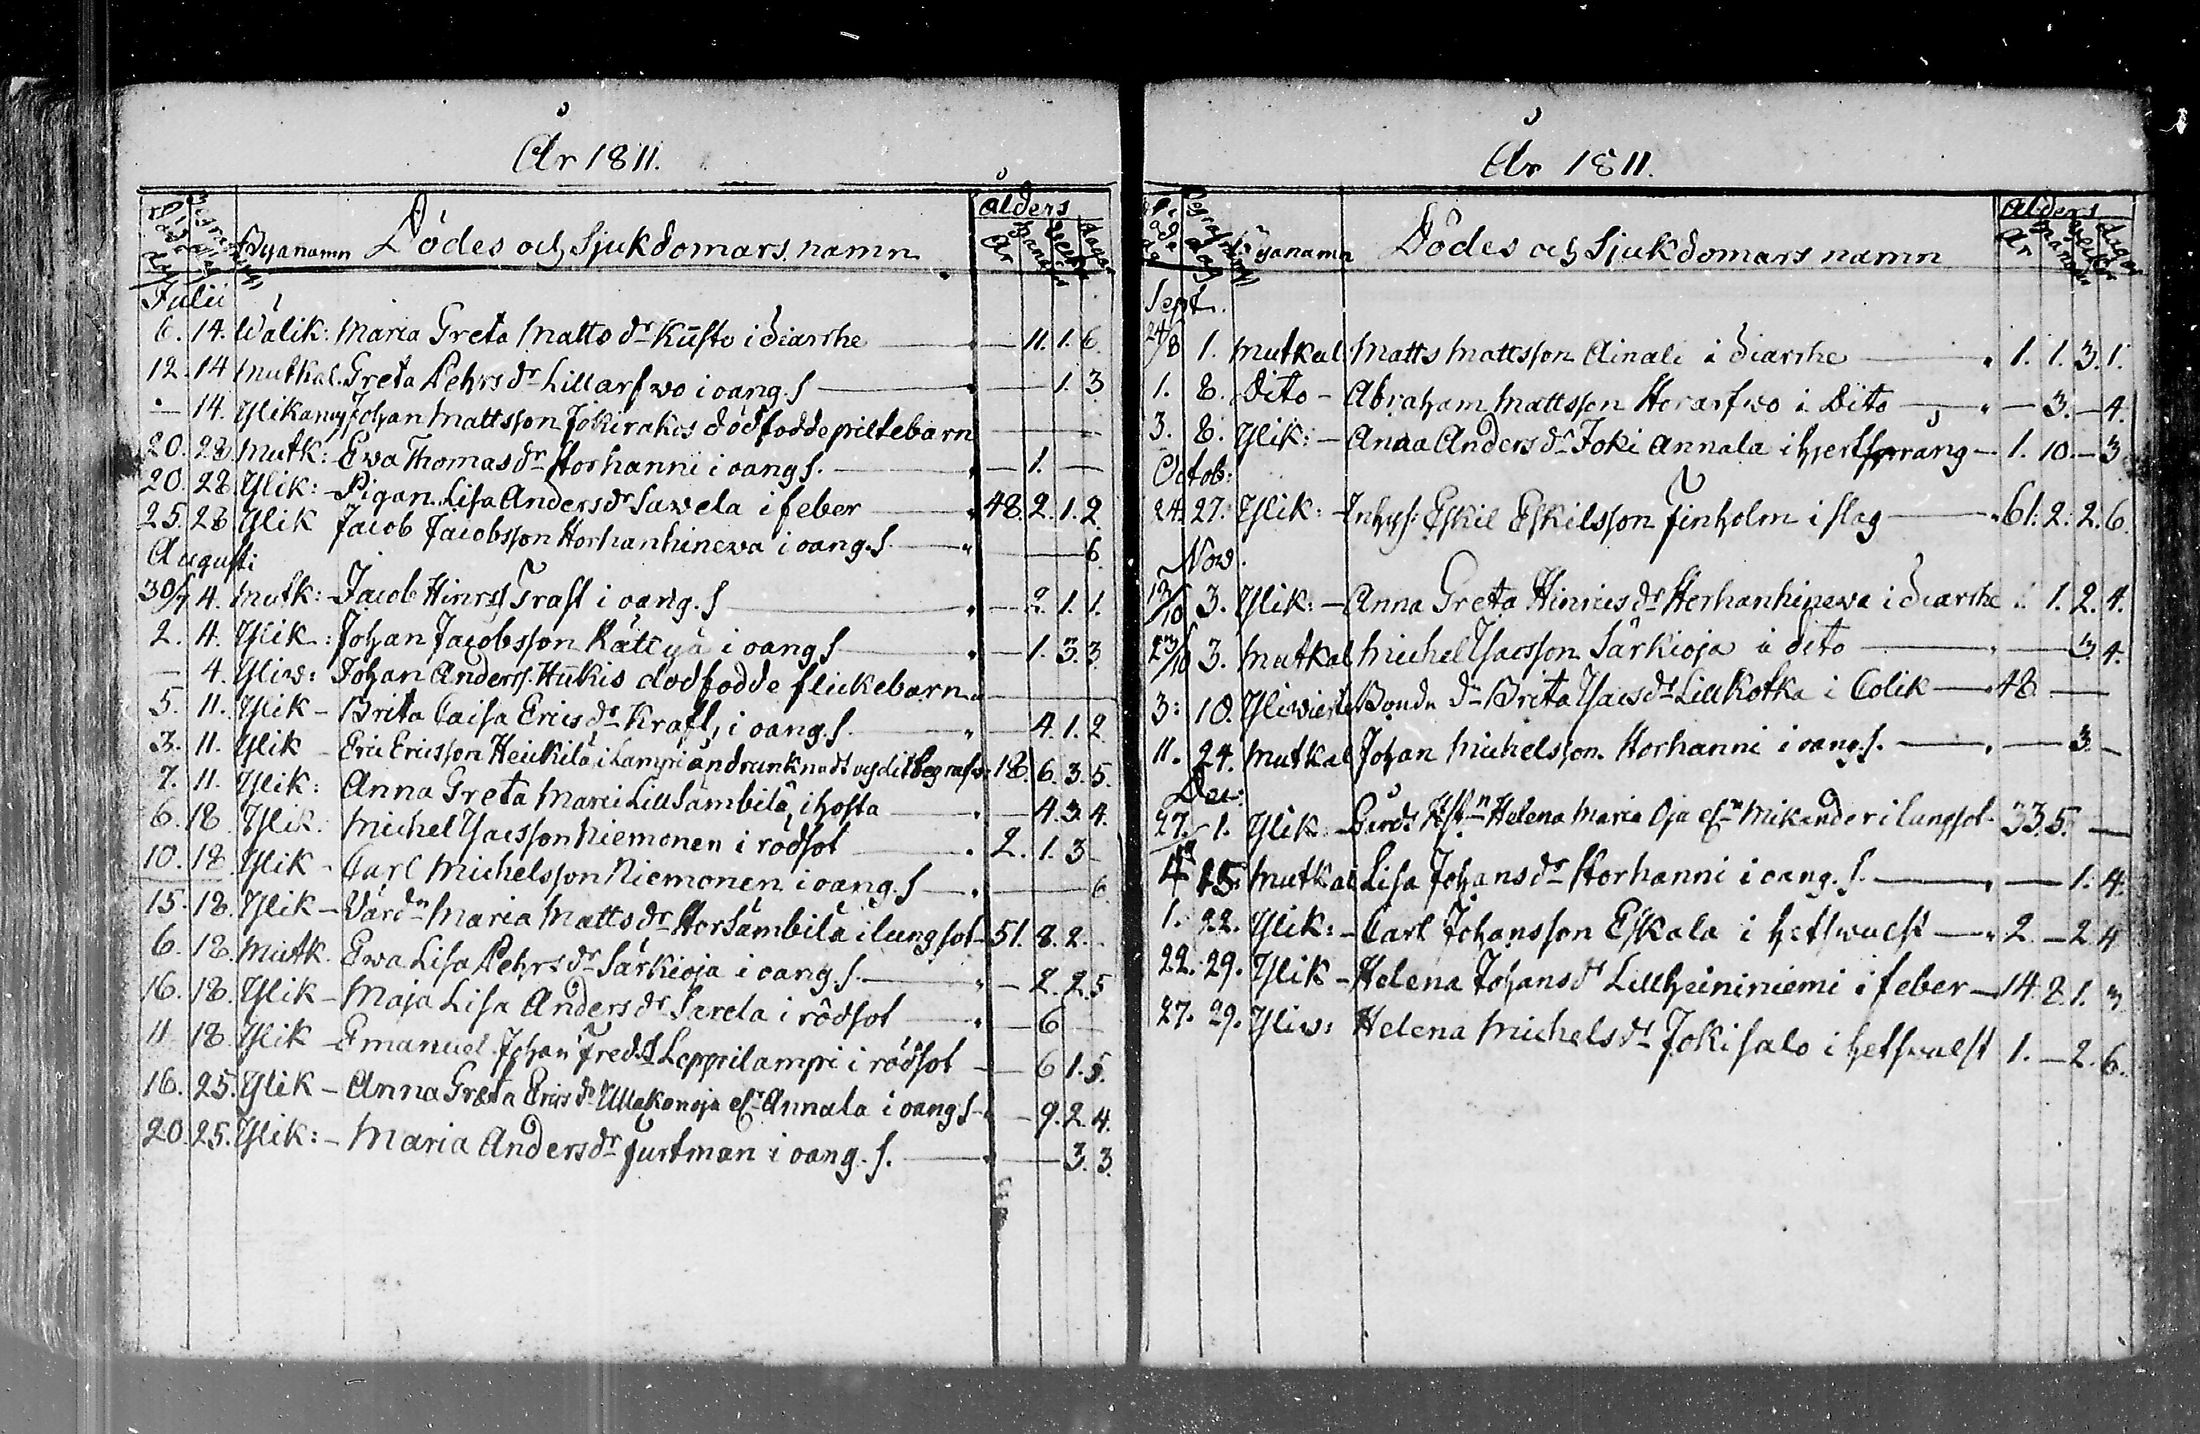 År 1811.
Döde dag Begrafnings dag Byanamn Dödes och Sjukdomars namn Ålders År månad veckor dagar
Julii
6. 14. Walik: Maria Greta Matts dr Kusto i diarrhe — 11. 1. 6.
12. 14 Mutkal. Greta Pehrs dr Lillarfwo i oang. s — 1. 3
— 14. Ylikany Johan Mattsson Jokirakos dödfödde piltebarn — — —
20. 28 Mutk: Ewa Thomas dr Storhanni i oang s. — 1. —
20. 28. Ylik: - Pigan Lisa Anders dr Sawela i feber — 48. 2. 1. 2.
25. 28 Ylik Jacob Jacobsson Korhanhinewa i oang. s. — 6.
Augusti
30/7 4. Mutk: - Jacob Hinrss Trast i oang. s — 2. 1. 1.
2. 4. Ylik: Johan Jacobsson Kättyä i oang s — 1. 3. 3.
— 4. Yliw: Johan Anderss. Hukis dödfödde flickebarn — — —
5. 11. Ylik - Brita Caisa Erics dr Kraft, i oang s. — 4. 1. 2.
3. 11. Ylik - Eric Ericsson Heickilä, i Lampi ån drunknadt och dit begrafw: 18. 6. 3. 5.
7. 11. Ylik: Anna Greta Marci Lillsämbilä, i hosta — 4. 3. 4.
6. 18. Ylik: Michel Ysacsson Niemonen i rödsot — 2. 1. 3 -
10. 18 Ylik - Carl Michelsson Niemonen i oang. s — 6
15. 18. Ylik - Värdn Maria Matts dr Korsämbilä i lungsot - 51. 8. 2. -
6. 18. Mutk. Ewa Lisa Pehrs dr Särkioja i oang s. — 2. 2. 5
16. 18. Ylik - Maja Lisa Anders dr Sarela i rödsot — 6 —
11. 18. Ylik - Emanuel Johan Freds Leppilampi i rödsot — 6 1. 5.
16. 25. Ylik - Anna Greta Erics dr Ullakonoja elr Annala i oang s - 9. 2. 4.
20. 25. Ylik: - Maria Anders dr Furtman i oang. s. — 3. 3.
År 1811.
Döde dag Begrafnings dag Byanamn Dödes och Sjukdomars namn Ålders År månad veckor dagar
Sept.
24/8 1. Mutkal: Matts Mattsson Ainali i diarrhe — 1. 1. 3. 1.
1. 8. Dito - Abraham Mattsson Korarfwo i Dito — 3. - 4.
3. 8. Ylik: - Anna Anders dr Joki Annala i hjertsprång - 1. 10. - 3
Octob:
24. 27. Ylik: - Inhys: Eskil Eskilsson Finholm i slag — 61. 2. 2. 6.
Nov.
19/10 3. Ylik: - Anna Greta Hinrics dr Korhanhinewa i diarrhe 1. 2. 4.
23/10 3. Mutkal Michel Ysacsson Särkioja i dito — 3. 4.
3: 10. Yliwiesk Bonde dr Brita Ysacs dr Lillkotka i Colik — 48 —
11. 24. Mutkal Johan Michelsson Korhanni i oang. s. — 3. —
Dec:
27. 1. Ylik: - Helena Maria Oja elr Mikander i lungsot - 33. 5. —
4. 15. Mutkal Lisa Johans dr Korhanni i oang. s. — 1. 4.
1. 22. Ylik: - Carl Johansson Eskala i hetswulst — 2. - 2. 4
22. 29. Ylik - Helena Johans dr Lillheiniemi i feber - 14. 8. 1. 3
27. 29. Yliw: Helena Michels dr Jokisalo i hetswulst 1. - 2. 6.